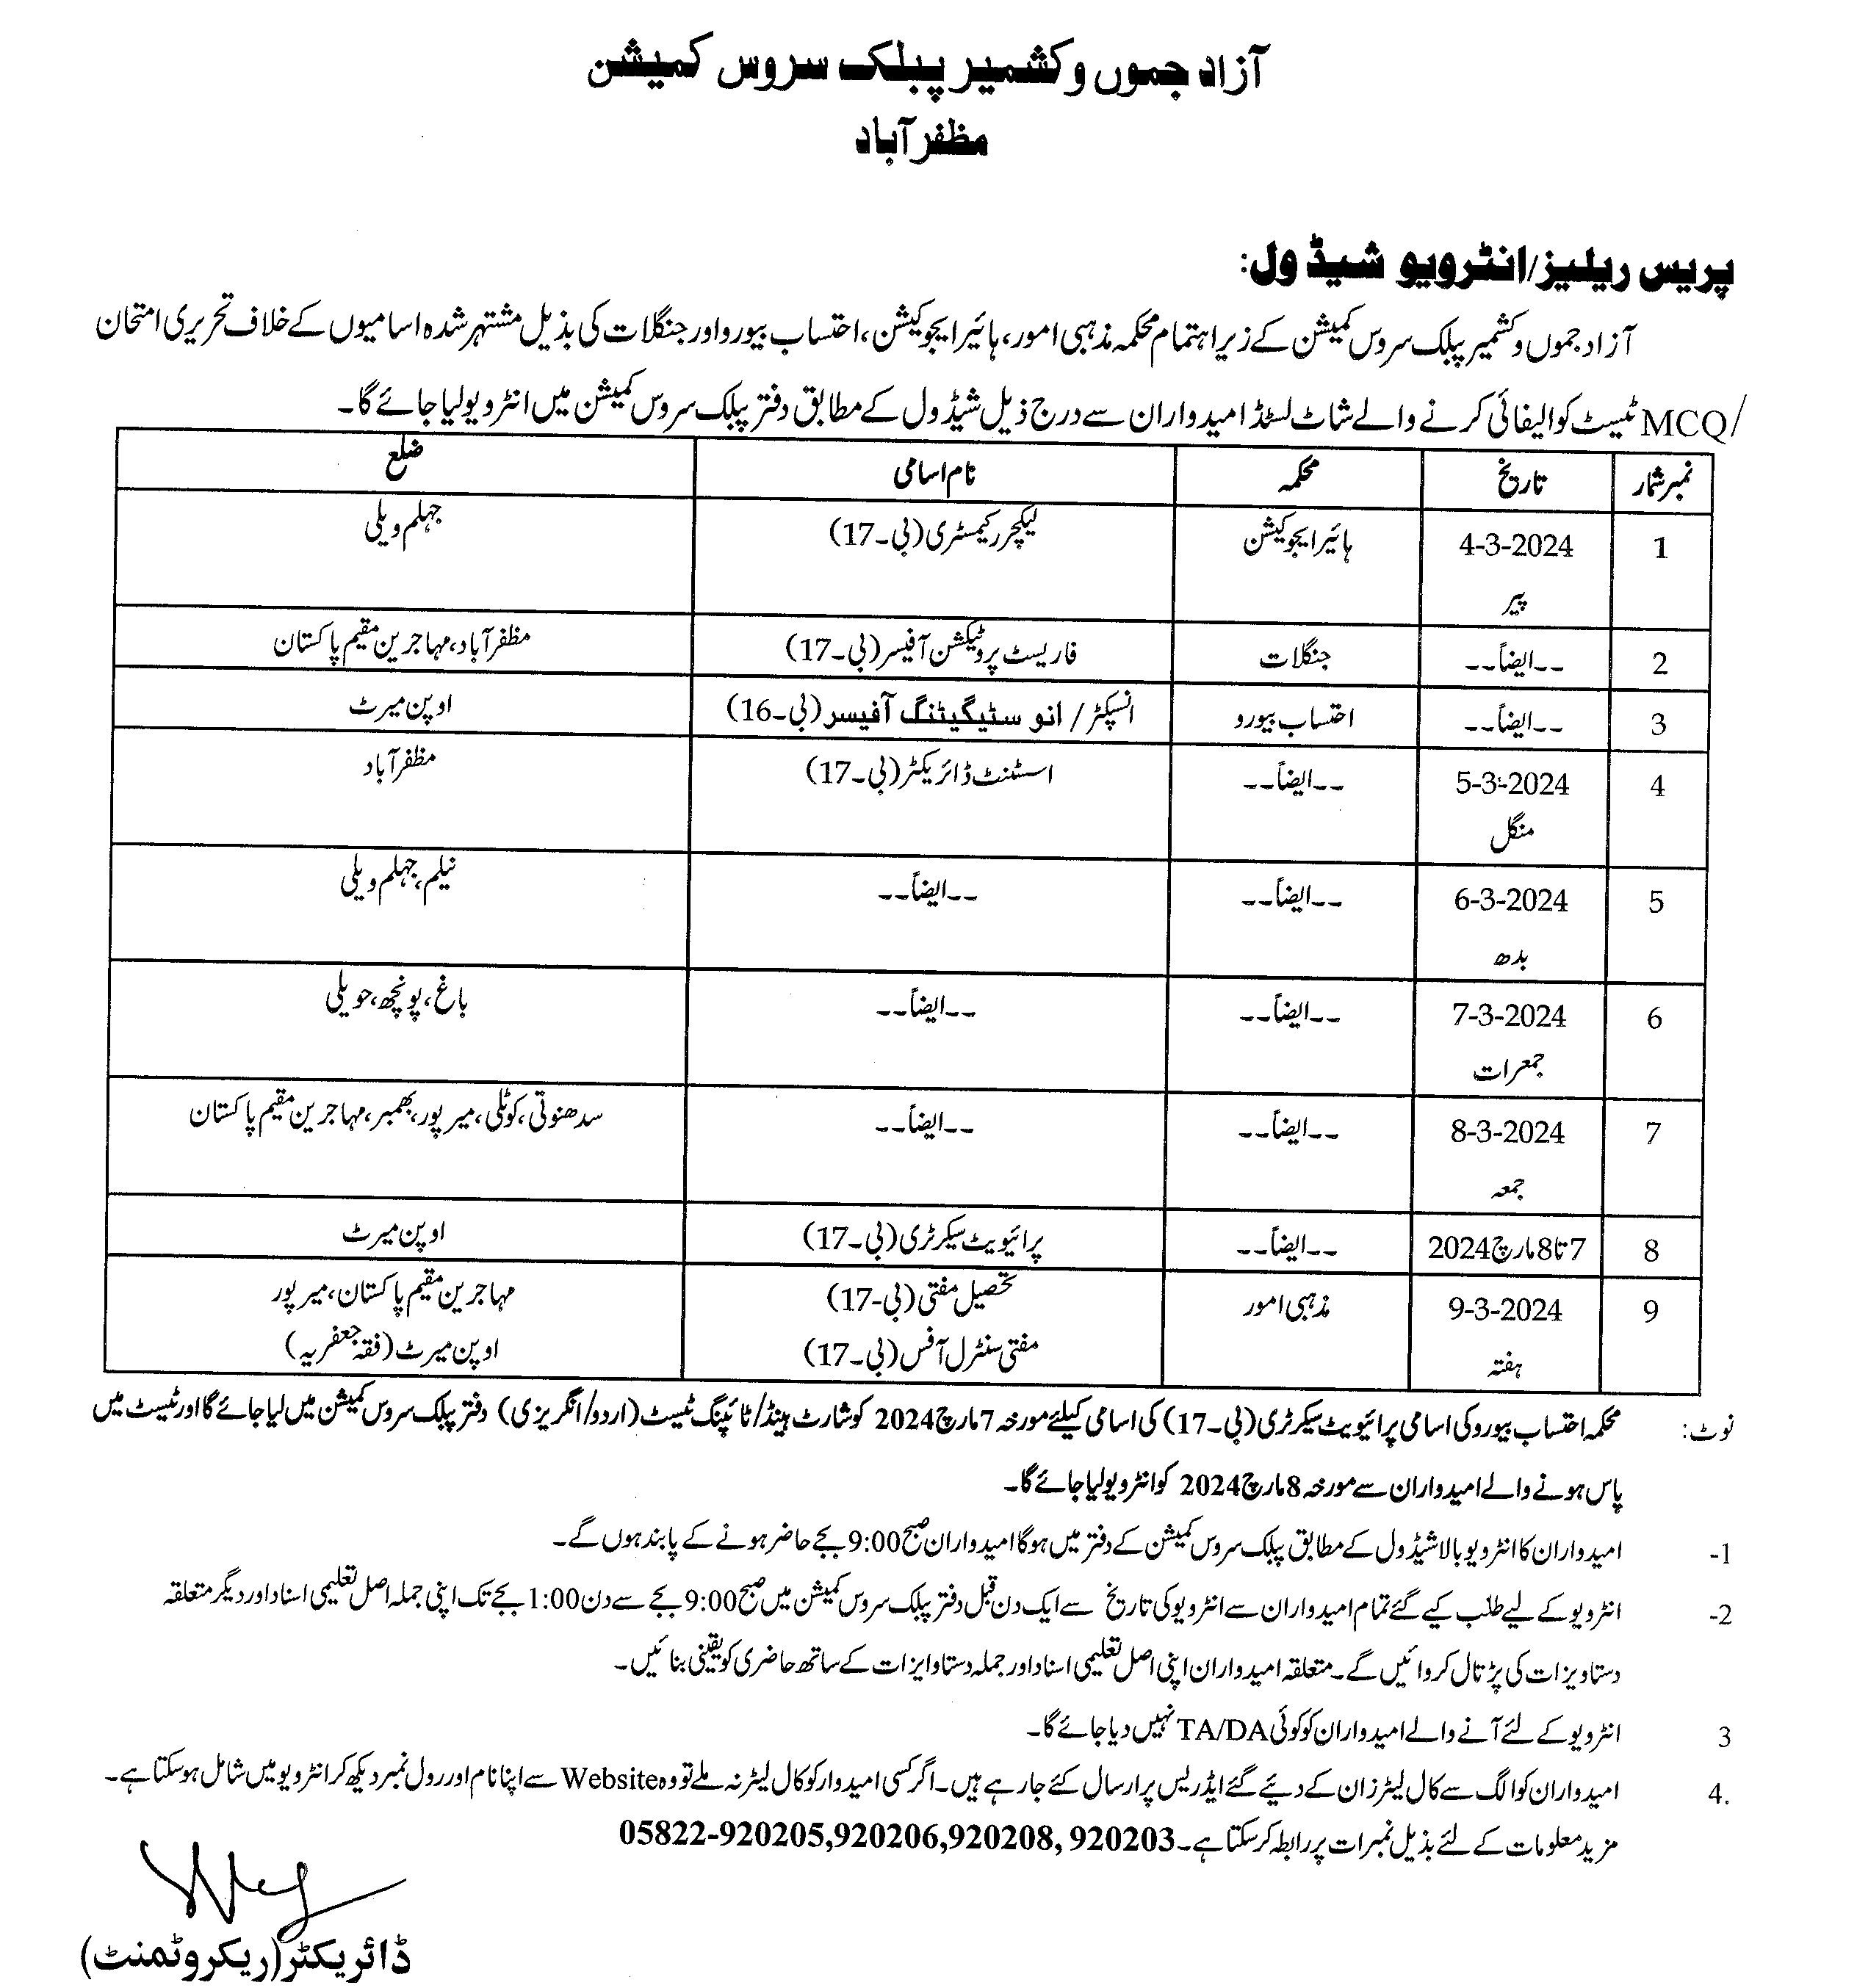 آزاد جموں و کشمیر پبلک سروس کمیشن
مظفرآباد
پریس ریلیز/انٹرویو شیڈول:
آزاد جموں و کشمیر پبلک سروس کمیشن کے زیر اہتمام محکمہ مذہبی امور، ہائیر ایجوکیشن، احتساب بیورو اور جنگلات کی بذیل مشتہر شدہ اسامیوں کے خلاف تحریری امتحان
/MCQ ٹیسٹ کوالیفائی کرنے والے شاٹ لسٹڈ امیدواران سے درج ذیل شیڈول کے مطابق دفتر پبلک سروس کمیشن میں انٹرویو لیا جائے گا۔
نمبر شمار تاریخ محکمہ نام اسامی ضلع
1 4-3-2024 ہائیر ایجوکیشن لیکچرر کیمسٹری (بی۔17) جہلم ویلی
پیر
2 --ایضاً-- جنگلات فاریسٹ پروٹیکشن آفیسر (بی۔17) مظفرآباد، مہاجرین مقیم پاکستان
3 --ایضاً-- احتساب بیورو انسپکٹر/ انوسٹیگیٹنگ آفیسر (بی۔16) اوپن میرٹ
4 5-3-2024 --ایضاً-- اسسٹنٹ ڈائریکٹر (بی۔17) مظفرآباد
منگل
5 6-3-2024 --ایضاً-- --ایضاً-- نیلم، جہلم ویلی
بدھ
6 7-3-2024 --ایضاً-- --ایضاً-- باغ، پونچھ، حویلی
جمعرات
7 8-3-2024 --ایضاً-- --ایضاً-- سدھنوتی، کوٹلی، میرپور، بھمبر، مہاجرین مقیم پاکستان
جمعہ
8 7 تا 8 مارچ 2024 --ایضاً-- پرائیویٹ سیکرٹری (بی۔17) اوپن میرٹ
9 9-3-2024 مذہبی امور تحصیل مفتی (بی-17) مہاجرین مقیم پاکستان، میرپور
ہفتہ مفتی سنٹرل آفس (بی۔17) اوپن میرٹ (فقہ جعفریہ)
نوٹ: محکمہ احتساب بیورو کی اسامی پرائیویٹ سیکرٹری (بی۔17) کی اسامی کیلئے مورخہ 7 مارچ 2024 کو شارٹ ہینڈ/ٹائپنگ ٹیسٹ (اردو/انگریزی) دفتر پبلک سروس کمیشن میں لیا جائے گا اور ٹیسٹ میں
پاس ہونے والے امیدواران سے مورخہ 8 مارچ 2024 کو انٹرویو لیا جائے گا۔
1- امیدواران کا انٹرویو بالا شیڈول کے مطابق پبلک سروس کمیشن کے دفتر میں ہوگا امیدواران صبح 9:00 بجے حاضر ہونے کے پابند ہوں گے۔
2- انٹرویو کے لیے طلب کیے گئے تمام امیدواران سے انٹرویو کی تاریخ سے ایک دن قبل دفتر پبلک سروس کمیشن میں صبح 9:00 بجے سے دن 1:00 بجے تک اپنی جملہ اصل تعلیمی اسناد اور دیگر متعلقہ
دستاویزات کی پڑتال کروائیں گے۔ متعلقہ امیدواران اپنی اصل تعلیمی اسناد اور جملہ دستاویزات کے ساتھ حاضری کو یقینی بنائیں۔
3 انٹرویو کے لئے آنے والے امیدواران کو کوئی TA/DA نہیں دیا جائے گا۔
4. امیدواران کو الگ سے کال لیٹرز ان کے دئیے گئے ایڈریس پر ارسال کئے جارہے ہیں۔ اگر کسی امیدوار کو کال لیٹر نہ ملے تو وہ Website سے اپنا نام اور رول نمبر دیکھ کر انٹرویو میں شامل ہوسکتا ہے۔
مزید معلومات کے لئے بذیل نمبرات پر رابطہ کرسکتا ہے۔ 05822-920205,920206,920208, 920203
ڈائریکٹر (ریکروٹمنٹ)